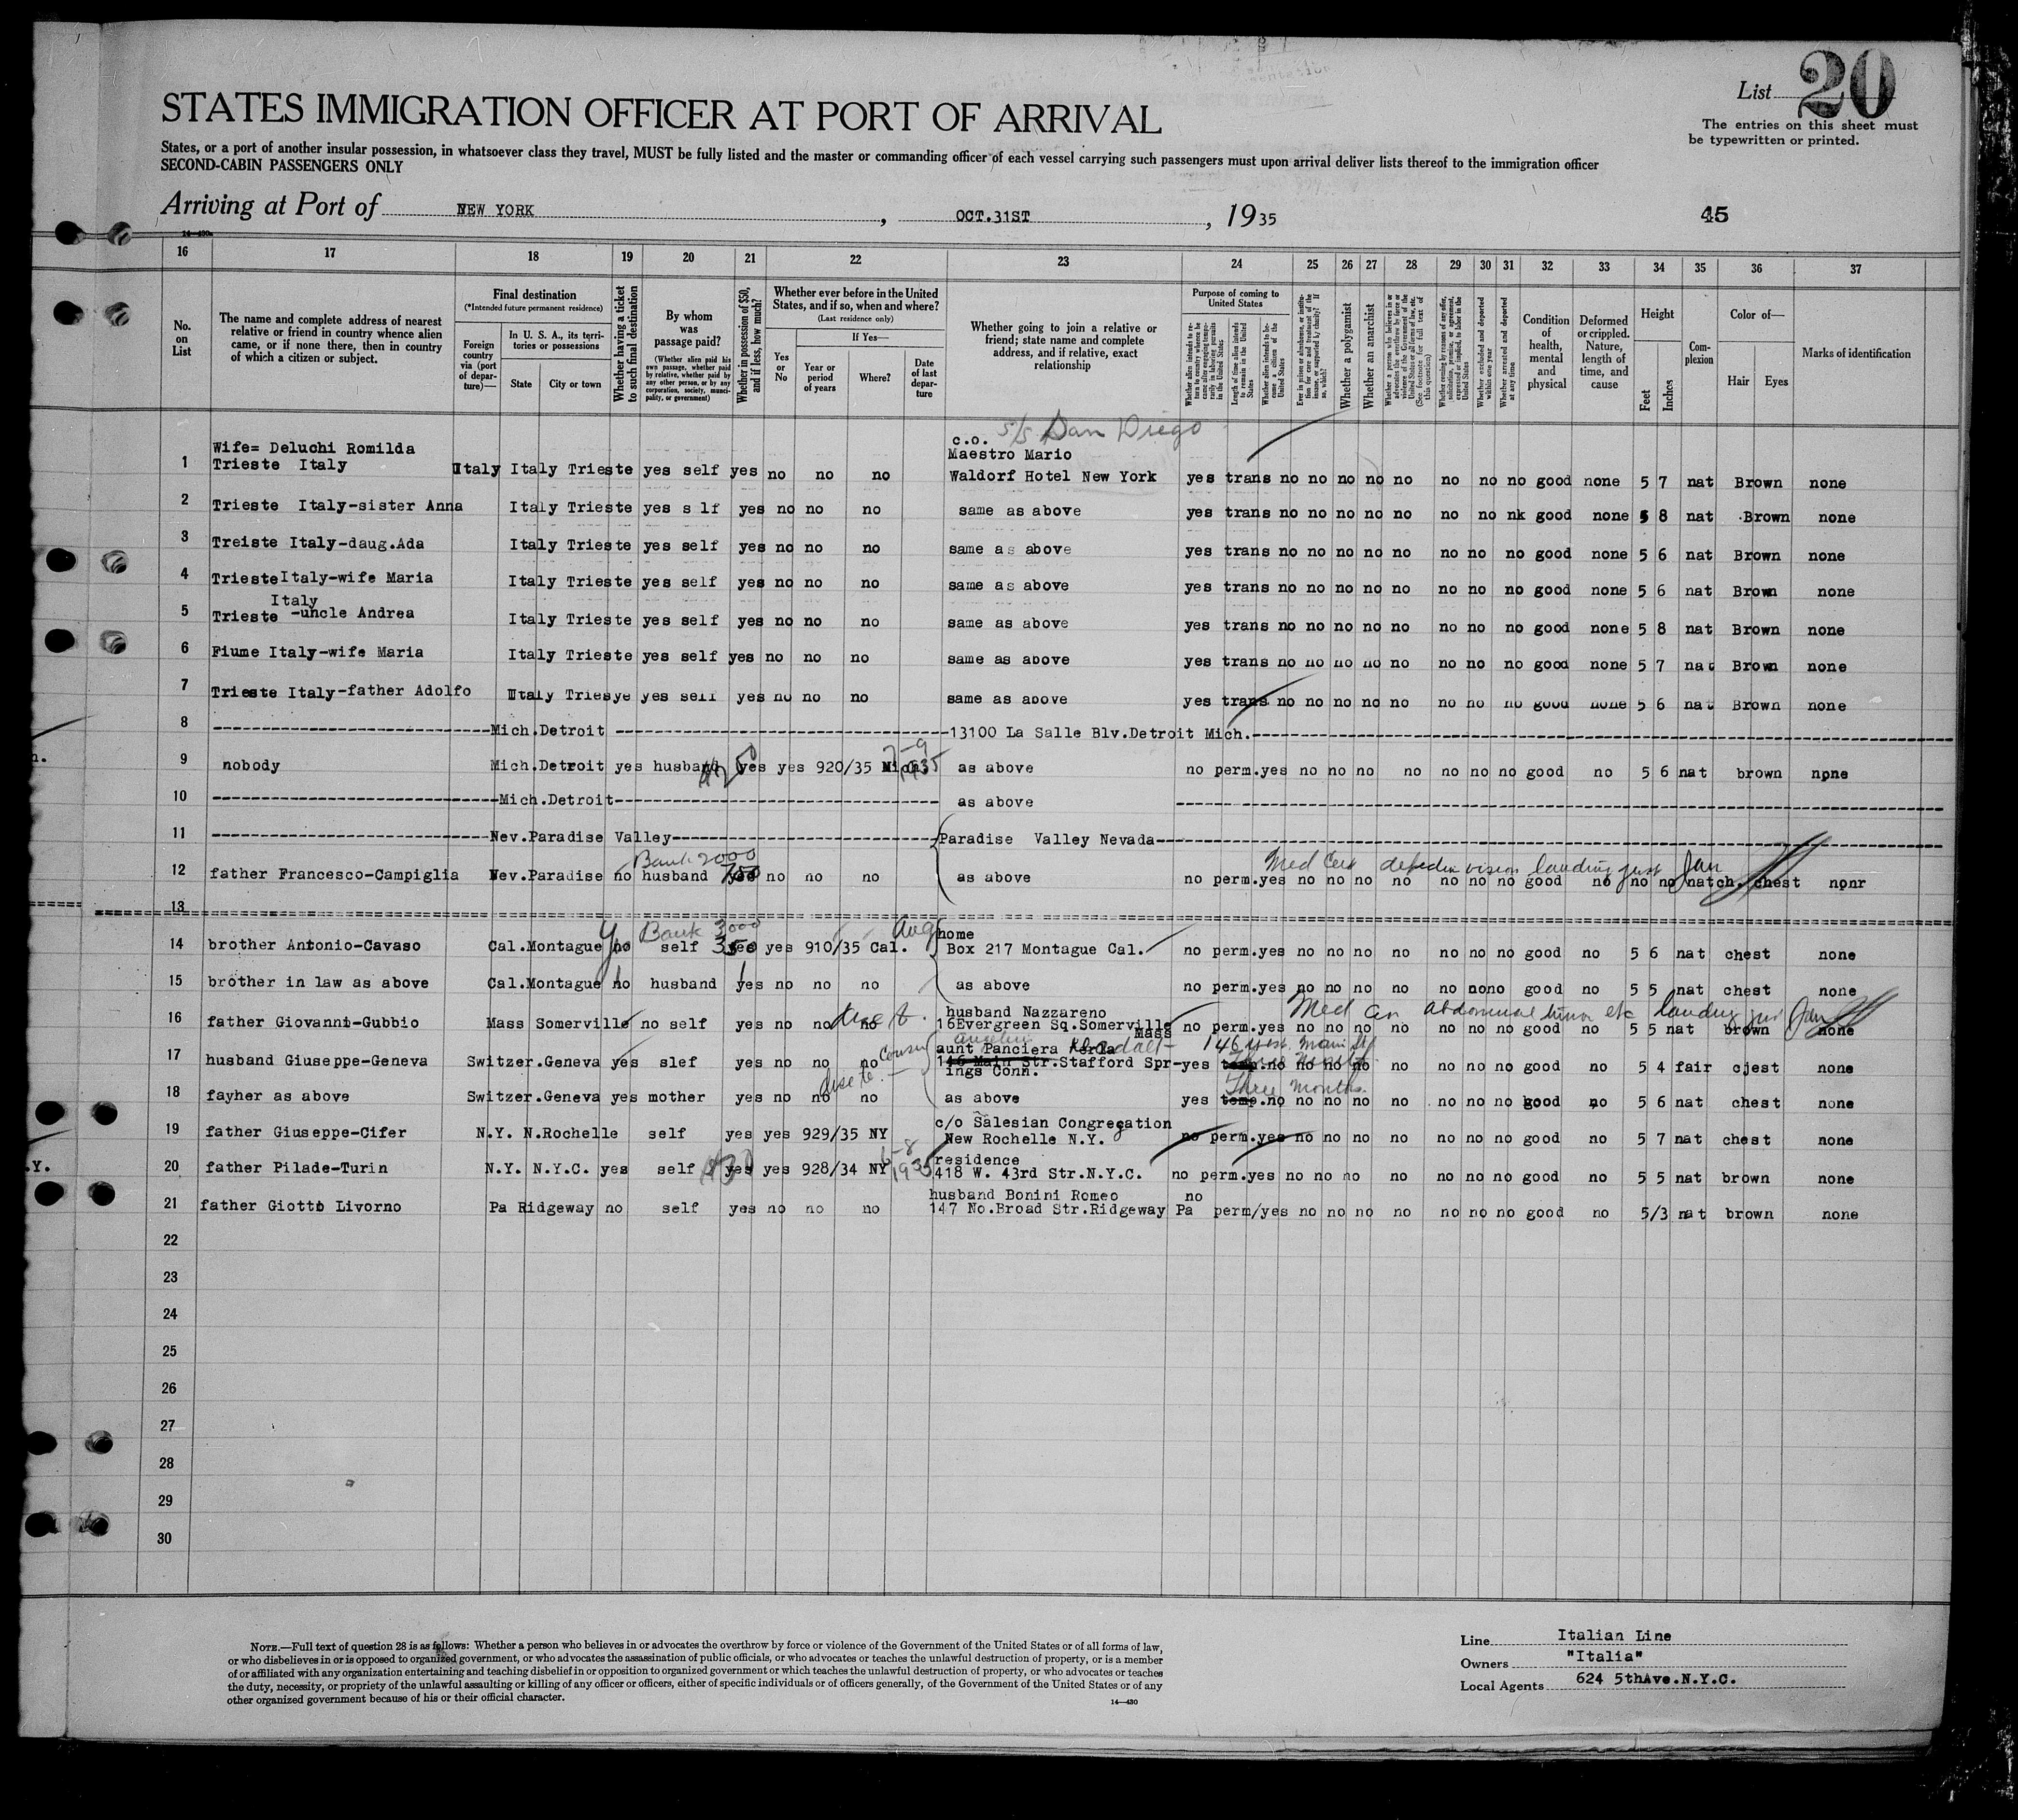 List 20
The entries on this sheet must
be typewritten or printed.
STATES IMMIGRATION OFFICER AT PORT OF ARRIVAL
States, or a port of another insular possession, in whatsoever class they travel, MUST be fully listed and the master or commanding officer of each vessel carrying such passengers must upon arrival deliver lists thereof to the immigration officer
SECOND-CABIN PASSENGERS ONLY
Arriving at Port of NEW YORK , OCT.31ST , 1935 45
14-430
16 17 18 19 20 21 22 23 24 25 26 27 28 29 30 31 32 33 34 35 36 37
No. on List
The name and complete address of nearest relative or friend in country whence alien came, or if none there, then in country of which a citizen or subject.
Final destination
(*Intended future permanent residence)
Foreign country via (port of departure)—
In U. S. A., its territories or possessions
State
City or town
Whether having a ticket to such final destination
By whom was passage paid?
(Whether alien paid his own passage, whether paid by relative, whether paid by any other person, or by any corporation, society, municipality, or government)
Whether in possession of $50, and if less, how much?
Whether ever before in the United States, and if so, when and where?
(Last residence only)
Yes or No
If Yes—
Year or period of years
Where?
Date of last departure
Whether going to join a relative or friend; state name and complete address, and if relative, exact relationship
Purpose of coming to United States
Length of time alien intends to remain in the United States
Whether alien intends to become a citizen of the United States
Whether a polygamist
Whether an anarchist
Whether excluded and deported within one year
Whether arrested and deported at any time
Condition of health, mental and physical
Deformed or crippled. Nature, length of time, and cause
Height
Feet
Inches
Complexion
Color of—
Hair
Eyes
Marks of identification
s/s San Diego
1 Wife= Deluchi Romilda
Trieste Italy Italy Italy Trieste yes self yes no no no c.o. Maestro Mario Waldorf Hotel New York yes trans no no no no no no no no good none 5 7 nat Brown none
2 Trieste Italy-sister Anna Italy Trieste yes s lf yes no no no same as above yes trans no no no no no no no nk good none 5 8 nat Brown none
3 Treiste Italy-daug.Ada Italy Trieste yes self yes no no no same as above yes trans no no no no no no no no good none 5 6 nat Brown none
4 Trieste Italy-wife Maria Italy Trieste yes self yes no no no same as above yes trans no no no no no no no no good none 5 6 nat Brown none
5 Trieste Italy -uncle Andrea Italy Trieste yes self yes no no no same as above yes trans no no no no no no no no good none 5 8 nat Brown none
6 Fiume Italy-wife Maria Italy Trieste yes self yes no no no same as above yes trans no no no no no no no no good none 5 7 nat Brown none
7 Trieste Italy-father Adolfo Italy Triesye yes self yes no no no same as above yes trans no no no no no no no no good none 5 6 nat Brown none
8 Mich.Detroit 13100 La Salle Blv.Detroit Mich.
9 nobody Mich.Detroit yes husband yes yes 920/35 Mich. 1935 as above no perm.yes no no no no no no no good no 5 6 nat brown none
10 Mich.Detroit as above
11 Nev.Paradise Valley Paradise Valley Nevada
Bank 2000
12 father Francesco-Campiglia Nev.Paradise no husband yes no no no as above no perm.yes no no no no no no no good no no no nat ch. chest nonr
13
Bank 3000
14 brother Antonio-Cavaso Cal.Montague no self 350 yes yes 910/35 Cal. Aug home
Box 217 Montague Cal. no perm.yes no no no no no no no good no 5 6 nat chest none
15 brother in law as above Cal.Montague no husband yes no no no as above no perm.yes no no no no no nono good no 5 5 nat chest none
16 father Giovanni-Gubbio Mass Somerville no self yes no no no husband Nazzareno
16Evergreen Sq.Somerville Mass no perm.yes no no no no no no no good no 5 5 nat brown none
17 husband Giuseppe-Geneva Switzer.Geneva yes slef yes no no no cousin aunt Panciera
146 Main Str.Stafford Springs Conn. 146 West Main St yes temp.no no no no no no no no good no 5 4 fair cjest none
Three months
18 fayher as above Switzer.Geneva yes mother yes no no no as above yes temp.no no no no no no no no good no 5 6 nat chest none
19 father Giuseppe-Cifer N.Y. N.Rochelle self yes yes 929/35 NY c/o Salesian Congregation
New Rochelle N.Y. no perm.yes no no no no no no no good no 5 7 nat chest none
20 father Pilade-Turin N.Y. N.Y.C. yes self yes yes 928/34 NY 6-8 1935 residence
418 W. 43rd Str.N.Y.C. no perm.yes no no no no no no no good no 5 5 nat brown none
21 father Giotto Livorno Pa Ridgeway no self yes no no no husband Bonini Romeo
147 No.Broad Str.Ridgeway Pa no perm/yes no no no no no no no good no 5/3 nat brown none
22
23
24
25
26
27
28
29
30
NOTE.—Full text of question 28 is as follows: Whether a person who believes in or advocates the overthrow by force or violence of the Government of the United States or of all forms of law,
or who disbelieves in or is opposed to organized government, or who advocates the assassination of public officials, or who advocates or teaches the unlawful destruction of property, or is a member
of or affiliated with any organization entertaining and teaching disbelief in or opposition to organized government or which teaches the unlawful destruction of property, or who advocates or teaches
the duty, necessity, or propriety of the unlawful assaulting or killing of any officer or officers, either of specific individuals or of officers generally, of the Government of the United States or of any
other organized government because of his or their official character.
14-430
Line Italian Line
Owners "Italia"
Local Agents 624 5thAve.N.Y.C.